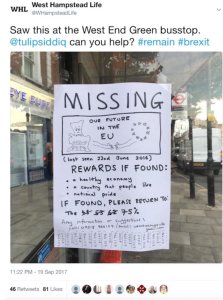 West Hampstead Life
@WHampsteadLife
Saw this at the West End Green busstop.
@tulipsiddiq can you help? #remain #brexit
MISSING
OUR FUTURE
IN THE
EU
(last seen 22nd June 2016)
REWARDS IF FOUND:
• a healthy economy
• a country that people like
• national pride
IF FOUND, PLEASE RETURN TO
The 75%
Any information or suggestions
11:22 PM - 19 Sep 2017
46 Retweets 81 Likes